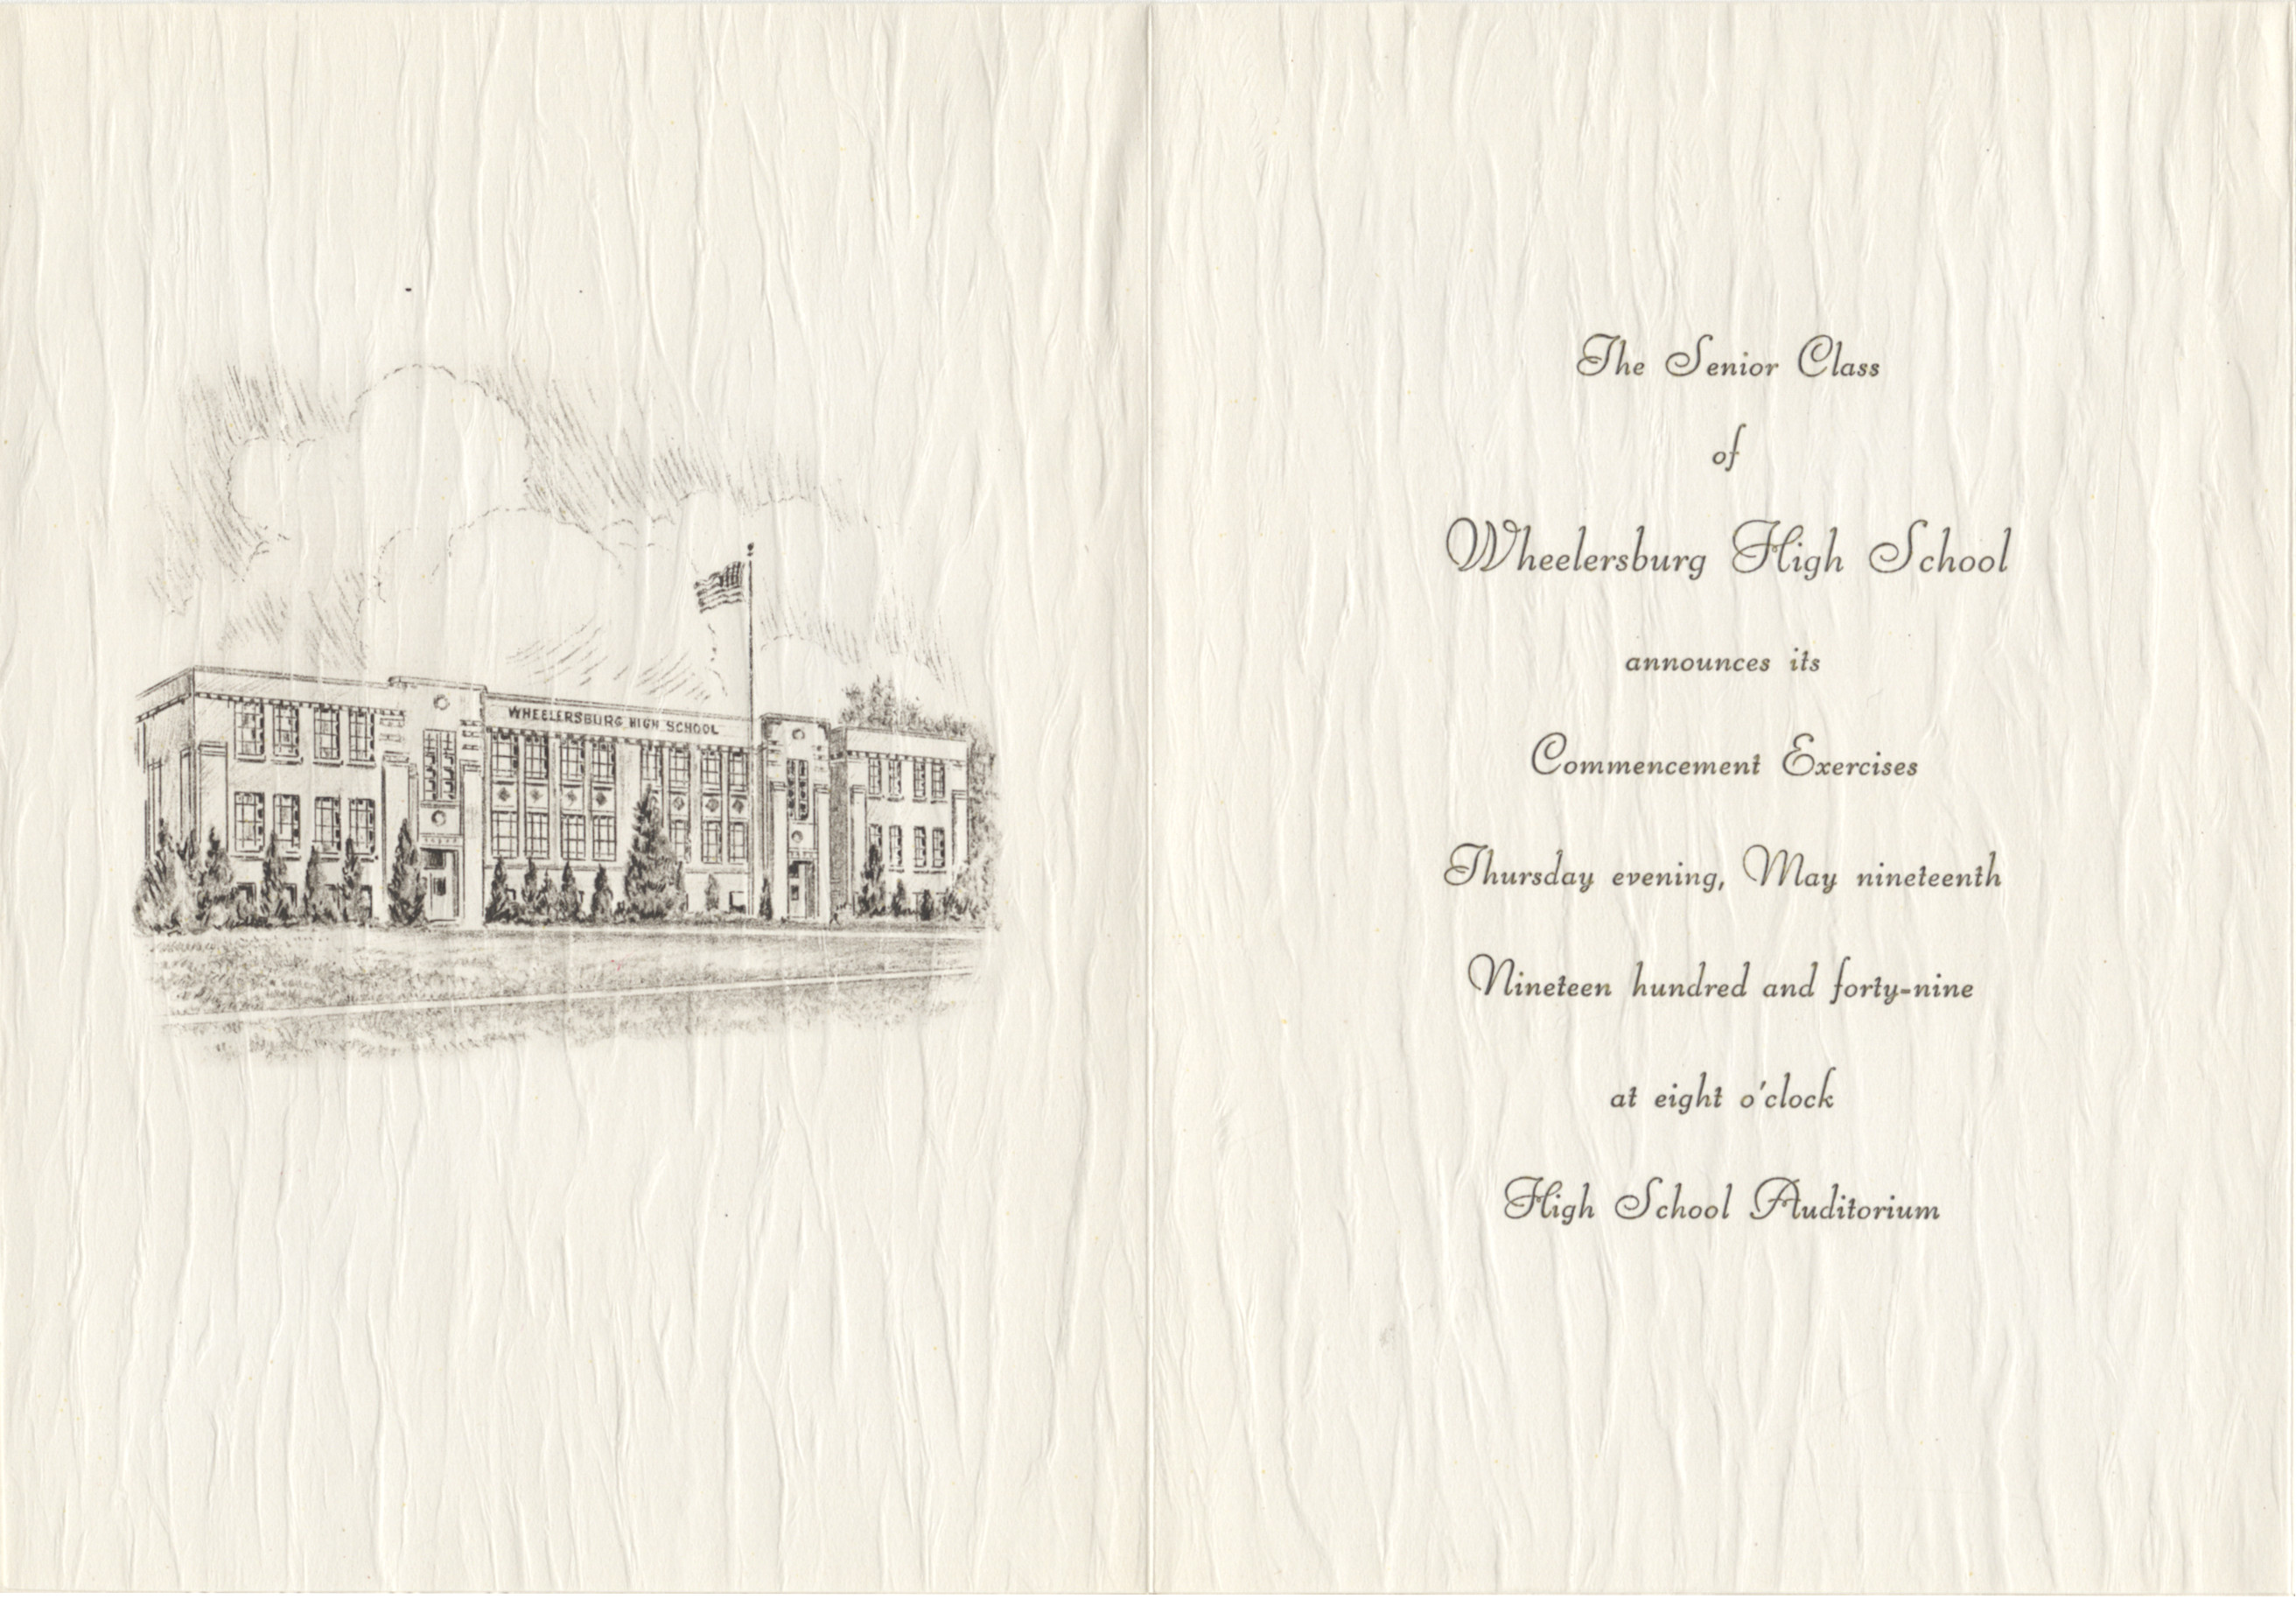 WHEELERSBURG HIGH SCHOOL
The Senior Class
of
Wheelersburg High School
announces its
Commencement Exercises
Thursday evening, May nineteenth
Nineteen hundred and forty-nine
at eight o'clock
High School Auditorium